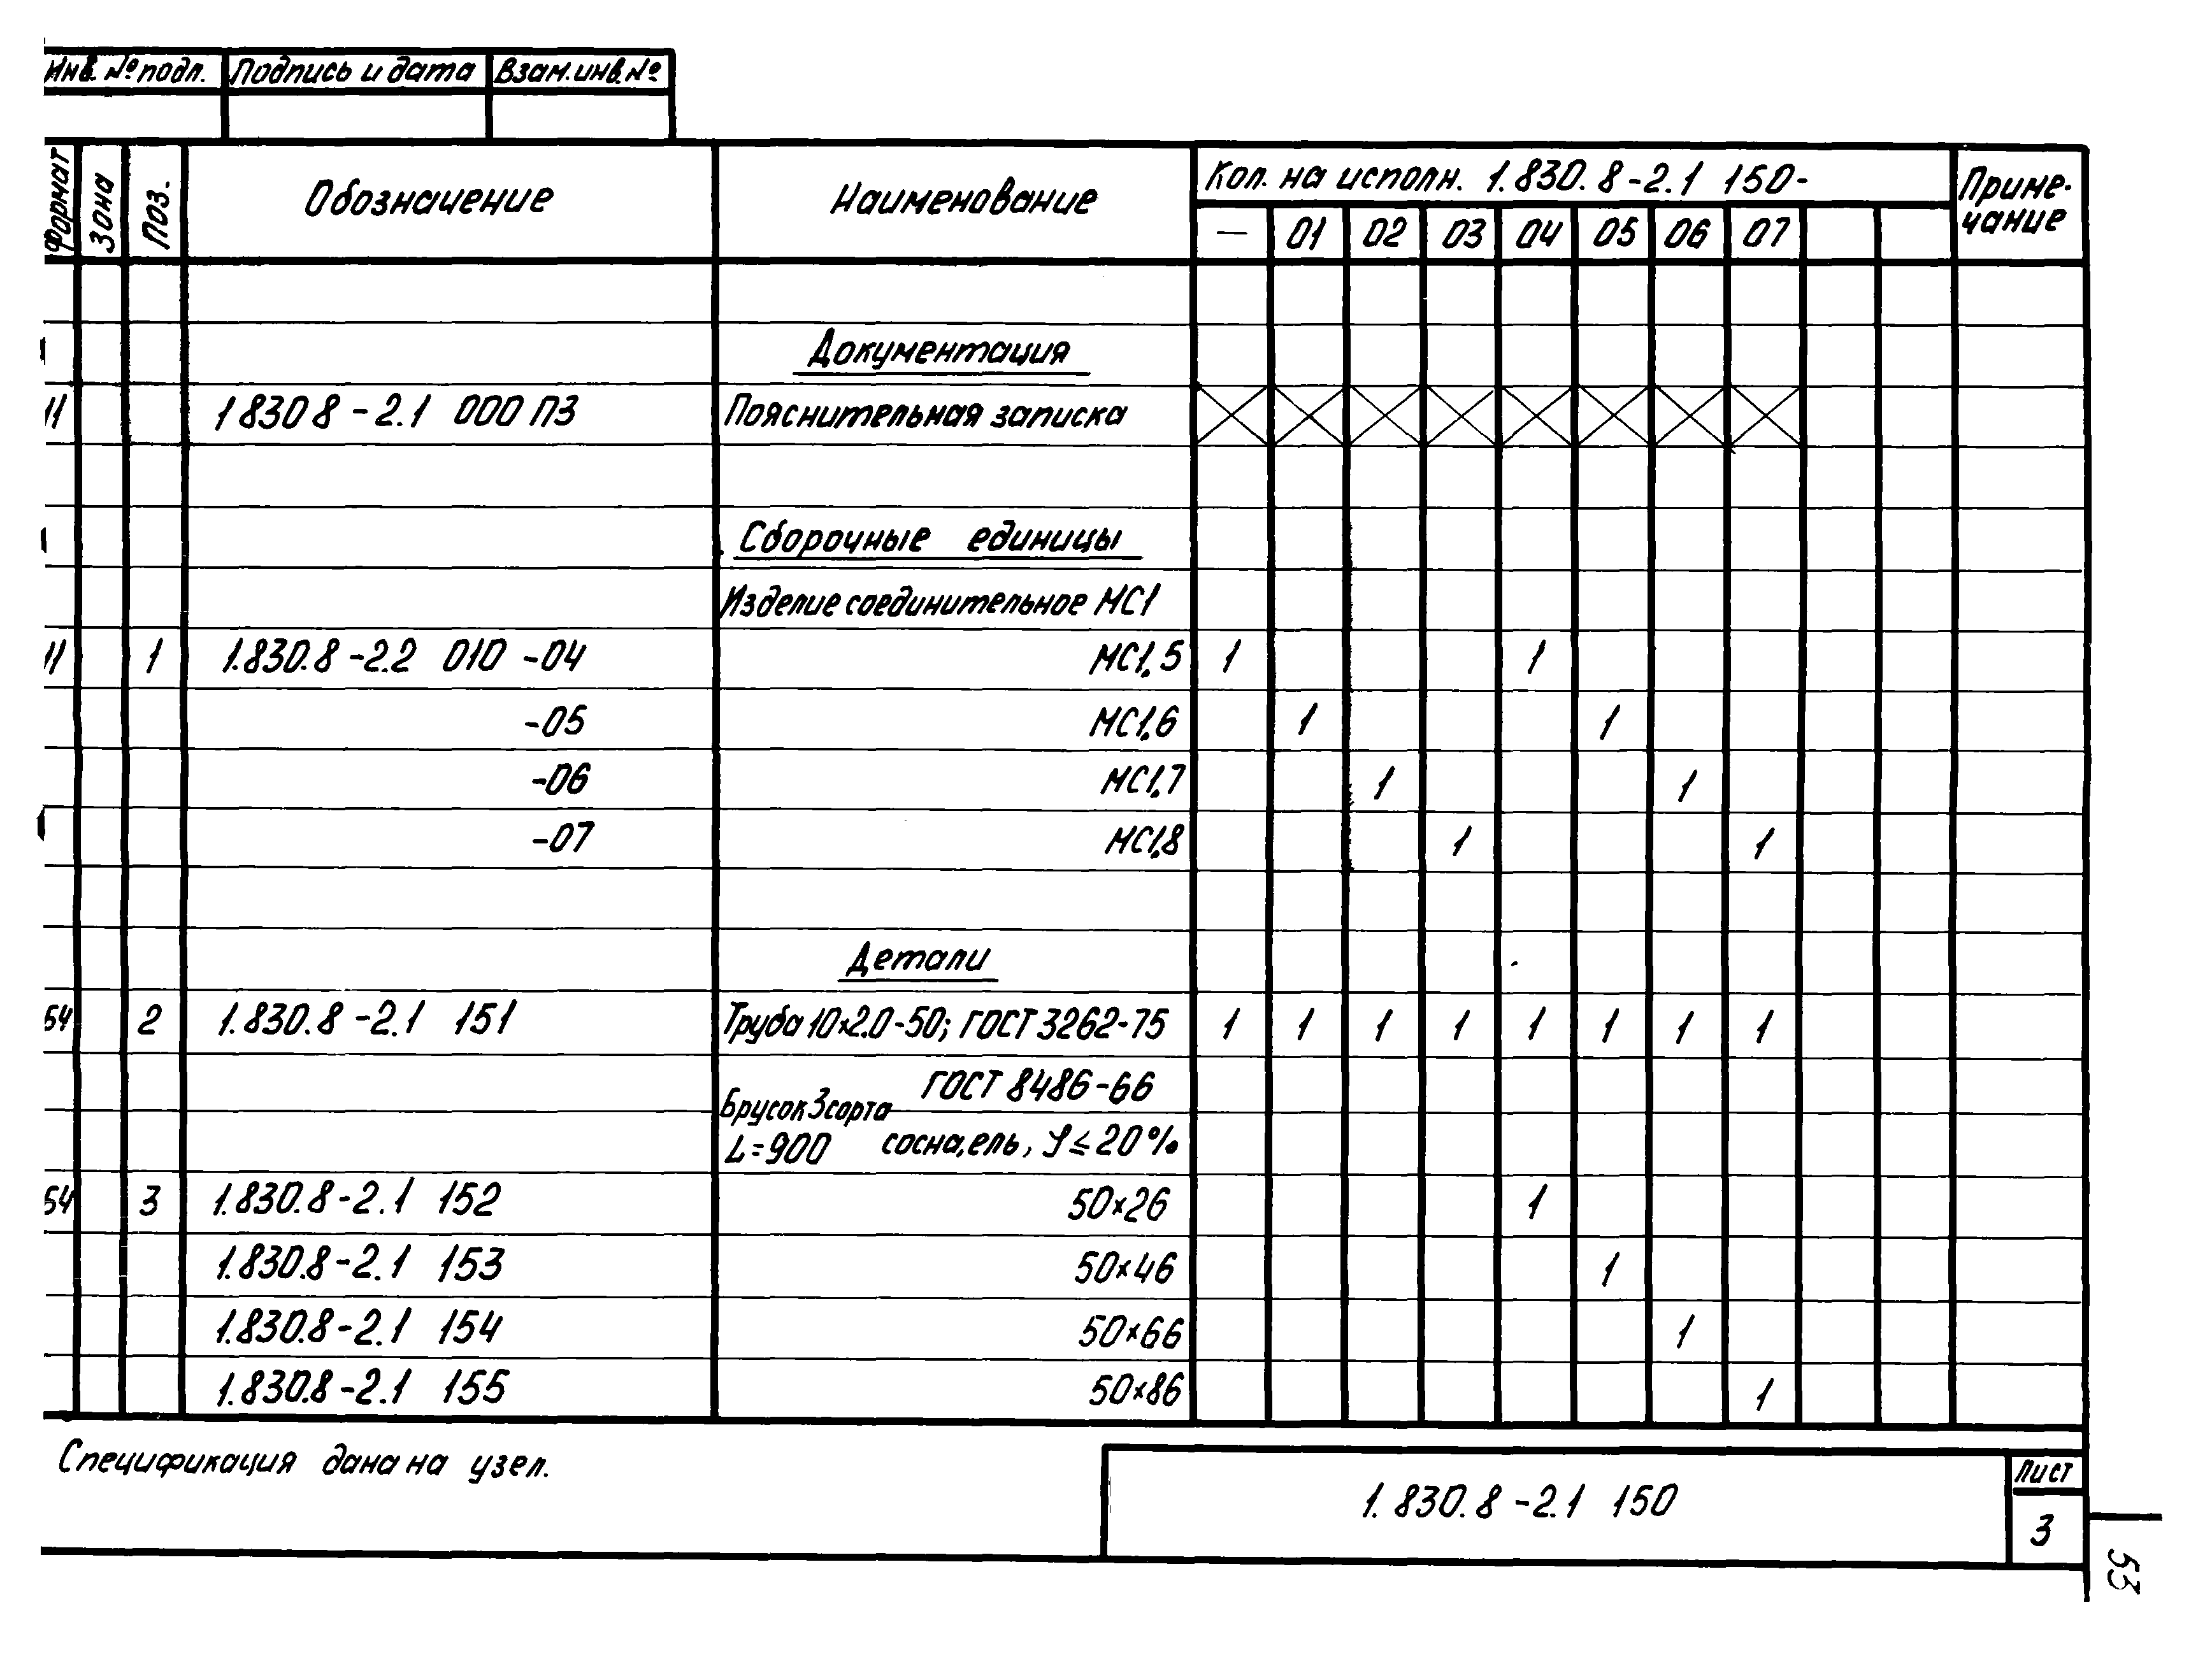 Инв. № подл. Подпись и дата Взам. инв. №
Формат Зона Поз. Обозначение Наименование Кол. на исполн. 1.830.8-2.1 150- Приме-
чание
— 01 02 03 04 05 06 07
Документация
11 1 830 8-2.1 000 ПЗ Пояснительная записка
Сборочные единицы
Изделие соединительное МС1
11 1 1.830.8-2.2 010 -04 МС1.5 1 1
-05 МС1.6 1 1
-06 МС1.7 1 1
-07 МС1.8 1 1
Детали
Б4 2 1.830.8-2.1 151 Труба 10×2.0-50; ГОСТ 3262-75 1 1 1 1 1 1 1 1
ГОСТ 8486-66
Брусок 3 сорта
L=900 сосна, ель, φ ≤ 20%
Б4 3 1.830.8-2.1 152 50×26 1
1.830.8-2.1 153 50×46 1
1.830.8-2.1 154 50×66 1
1.830.8-2.1 155 50×86 1
Спецификация дана на узел.
1.830.8-2.1 150
Лист
3
53